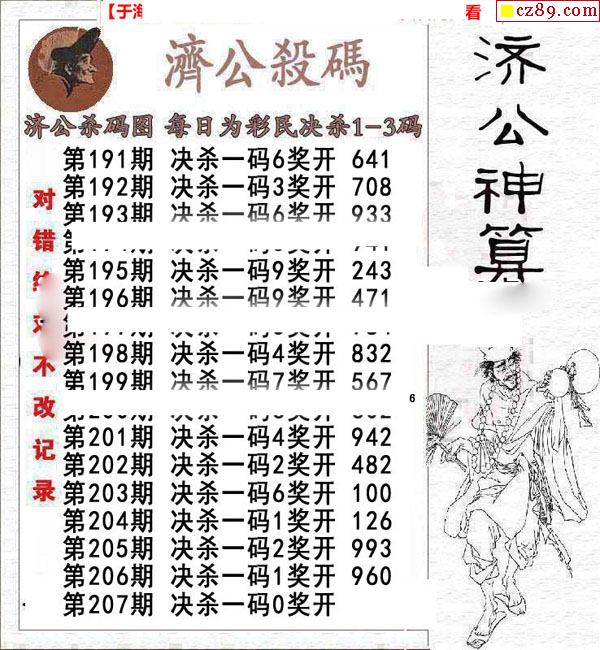 【于海
看
cz89.com
濟公殺碼
济公神算
济公杀码图 每日为彩民决杀1-3码
对错绝对不改记录
第191期 决杀一码6奖开 641
第192期 决杀一码3奖开 708
第193期 决杀一码6奖开 933
第195期 决杀一码9奖开 243
第196期 决杀一码9奖开 471
第198期 决杀一码4奖开 832
第199期 决杀一码7奖开 567
6
第201期 决杀一码4奖开 942
第202期 决杀一码2奖开 482
第203期 决杀一码6奖开 100
第204期 决杀一码1奖开 126
第205期 决杀一码2奖开 993
第206期 决杀一码1奖开 960
第207期 决杀一码0奖开